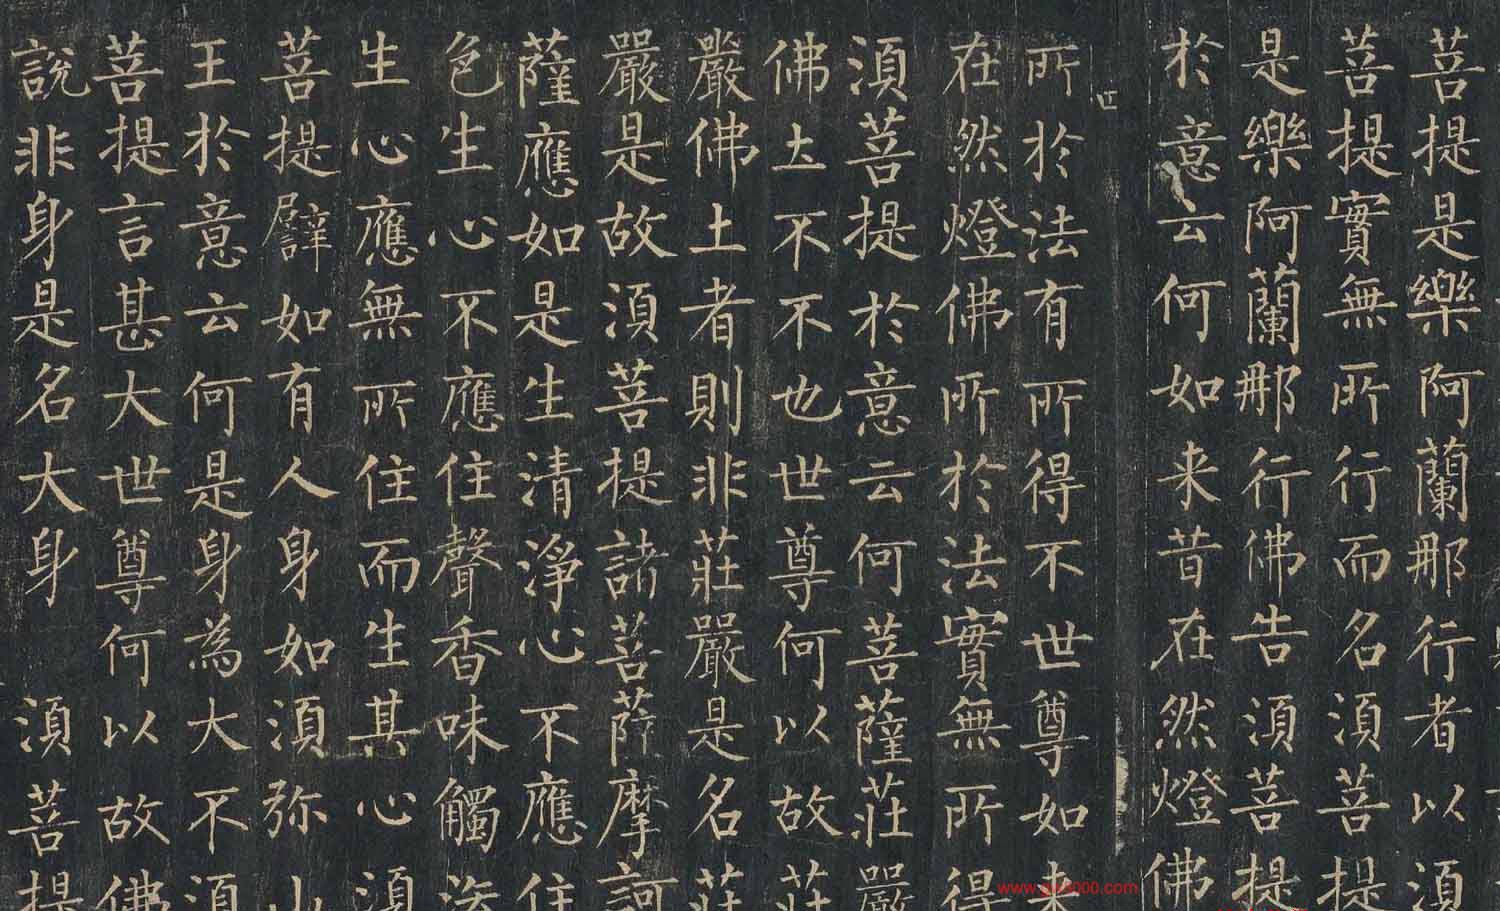 菩提是樂阿蘭那行者以須
菩提實無所行而名須菩提
是樂阿蘭那行佛告須菩提
於意云何如来昔在然燈佛
所於法有所得不世尊如来
在然燈佛所於法實無所得
須菩提於意云何菩薩莊嚴
佛土不不也世尊何以故莊
嚴佛土者則非莊嚴是名莊
嚴是故須菩提諸菩薩摩訶
薩應如是生清淨心不應住
色生心不應住聲香味觸法
生心應無所住而生其心須
菩提譬如有人身如須弥山
王於意云何是身為大不須
菩提言甚大世尊何以故佛
說非身是名大身 須菩提
www.gw5000.com